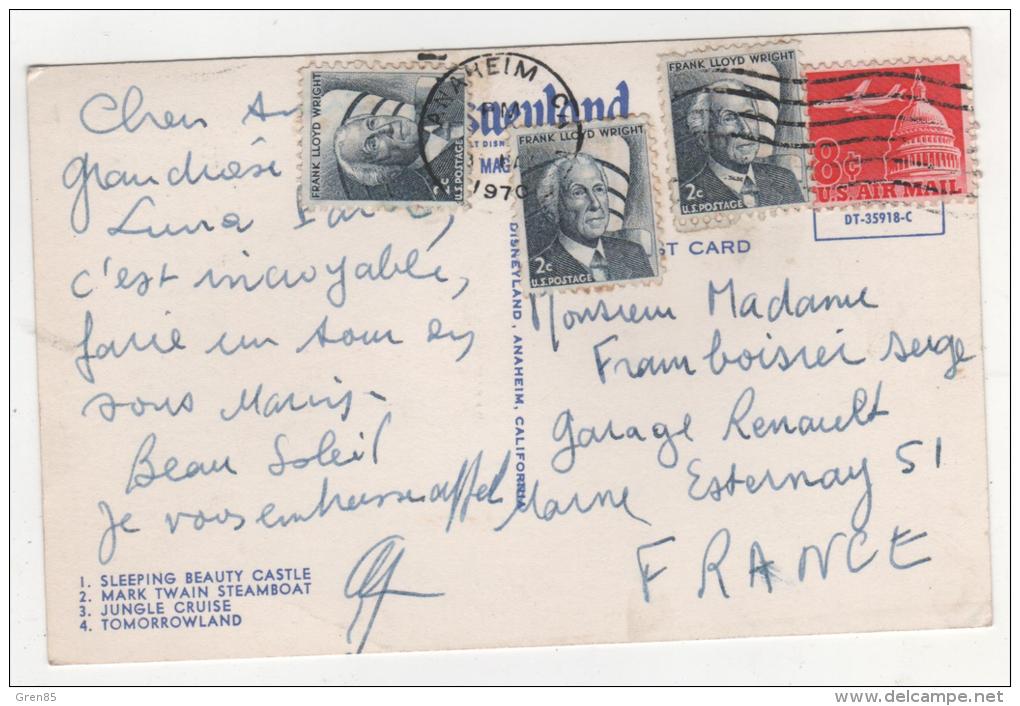 Disneyland
FRANK LLOYD WRIGHT
2c
U.S. POSTAGE
ANAHEIM
PM
1970
FRANK LLOYD WRIGHT
2c
U.S. POSTAGE
FRANK LLOYD WRIGHT
2c
U.S. POSTAGE
8¢
U.S. AIR MAIL
DT-35918-C
ST CARD
DISNEYLAND, ANAHEIM, CALIFORNIA
grandiose
Luna
c'est incroyable,
un tour en
sous Marins -
Beau Soleil
Je vous embrasse affec
Monsieur Madame
Framboisier Serge
Garage Renault
Marne Esternay 51
FRANCE
1. SLEEPING BEAUTY CASTLE
2. MARK TWAIN STEAMBOAT
3. JUNGLE CRUISE
4. TOMORROWLAND
Gren85
www.delcampe.net